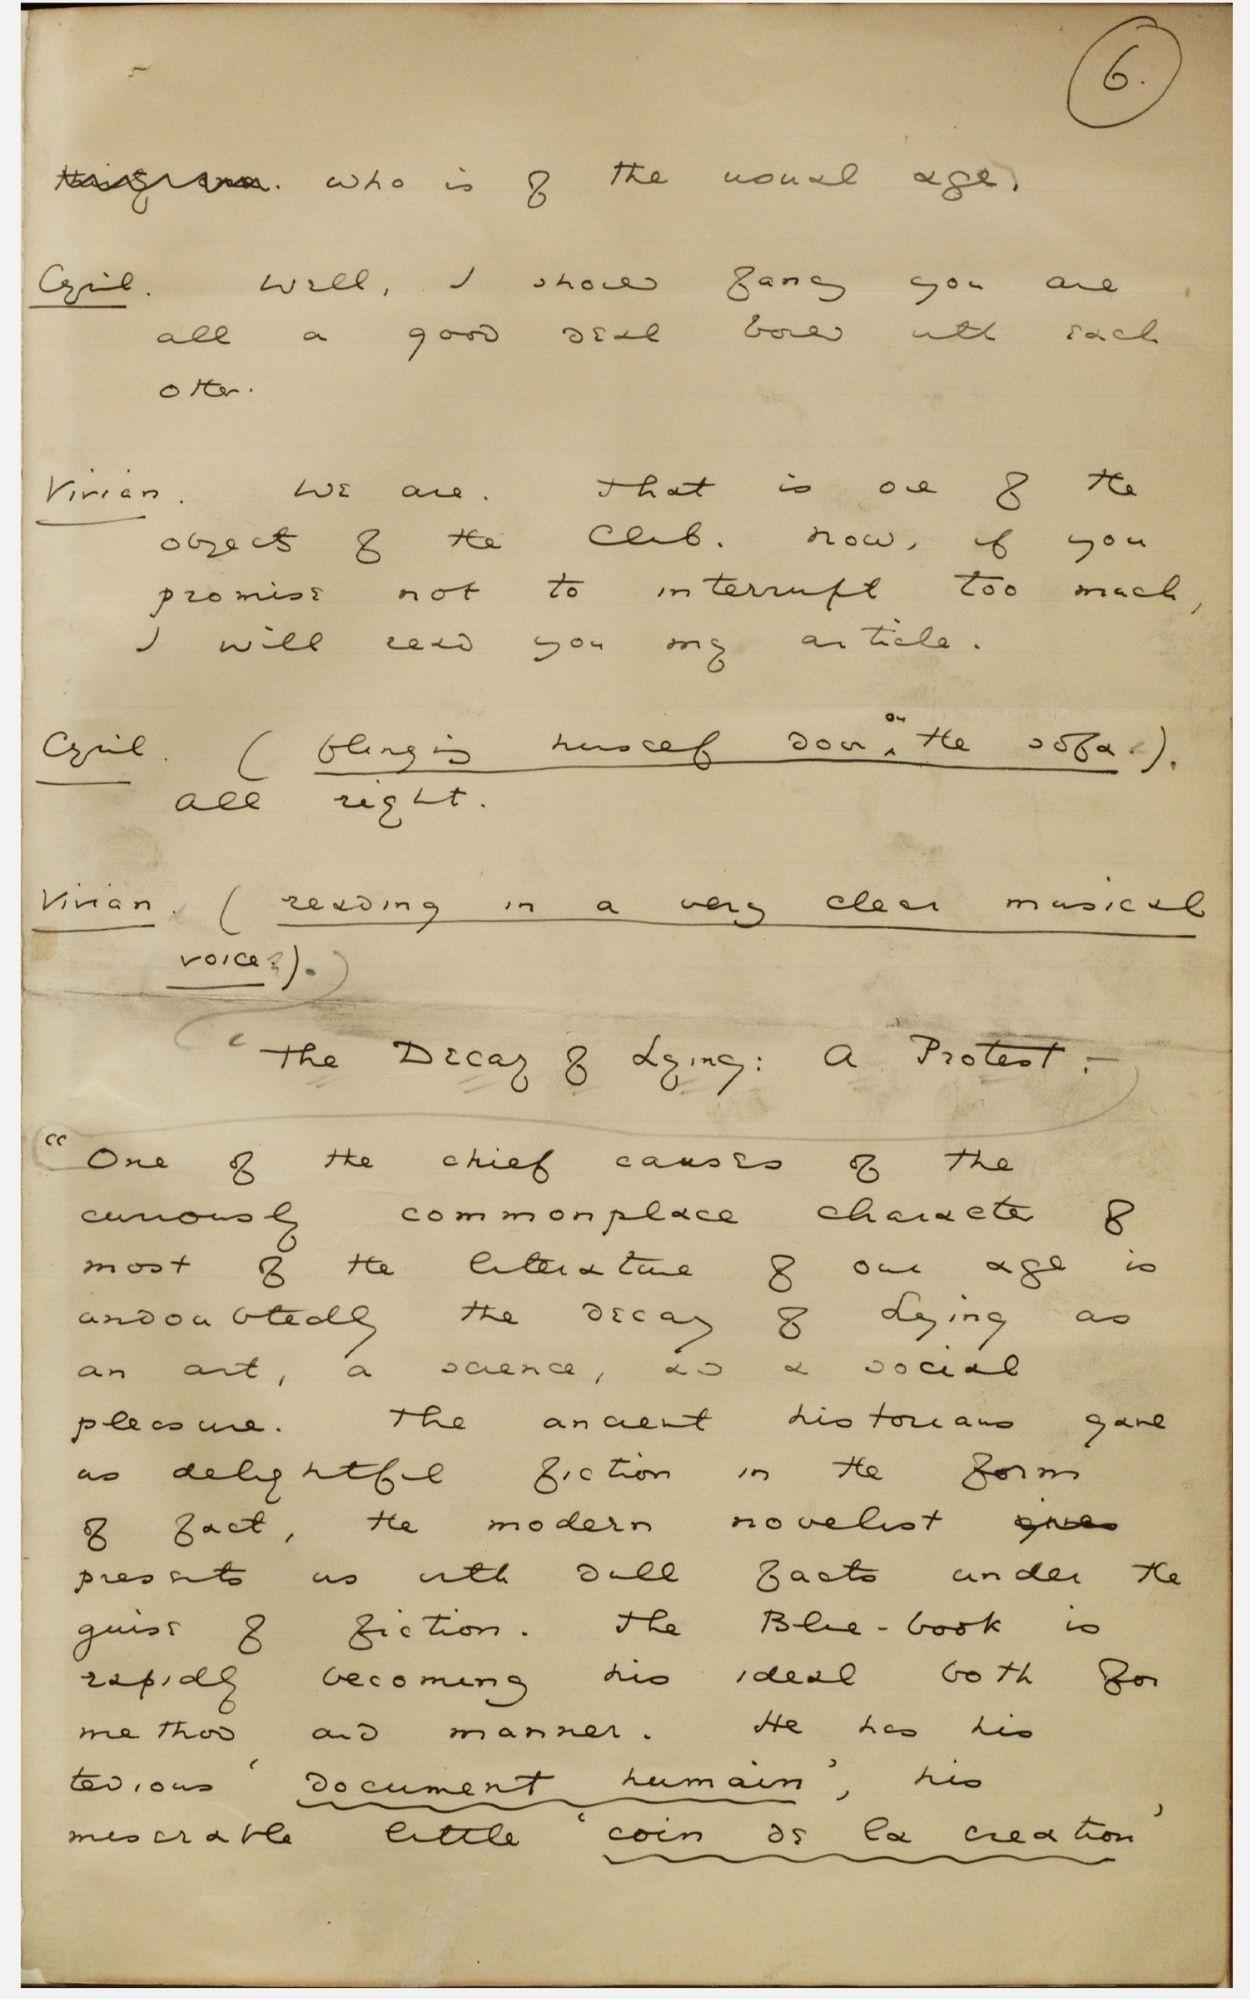 6.
who is of the usual age.
Cyril. Well, I should fancy you are
all a good deal bored with each
other.
Vivian. We are. That is one of the
objects of the Club. Now, if you
promise not to interrupt too much,
I will read you my article.
Cyril. (flinging himself down on the sofa.).
All right.
Vivian. (reading in a very clear musical
voice).
'The Decay of Lying: A Protest.—
"One of the chief causes of the
curiously commonplace character of
most of the literature of our age is
undoubtedly the decay of Lying as
an art, a science, as a social
pleasure. The ancient historians gave
us delightful fiction in the form
of fact, the modern novelist gives
presents us with dull facts under the
guise of fiction. The Blue-book is
rapidly becoming his ideal both for
method and manner. He has his
tedious 'document humain', his
miserable little 'coin de la creation'